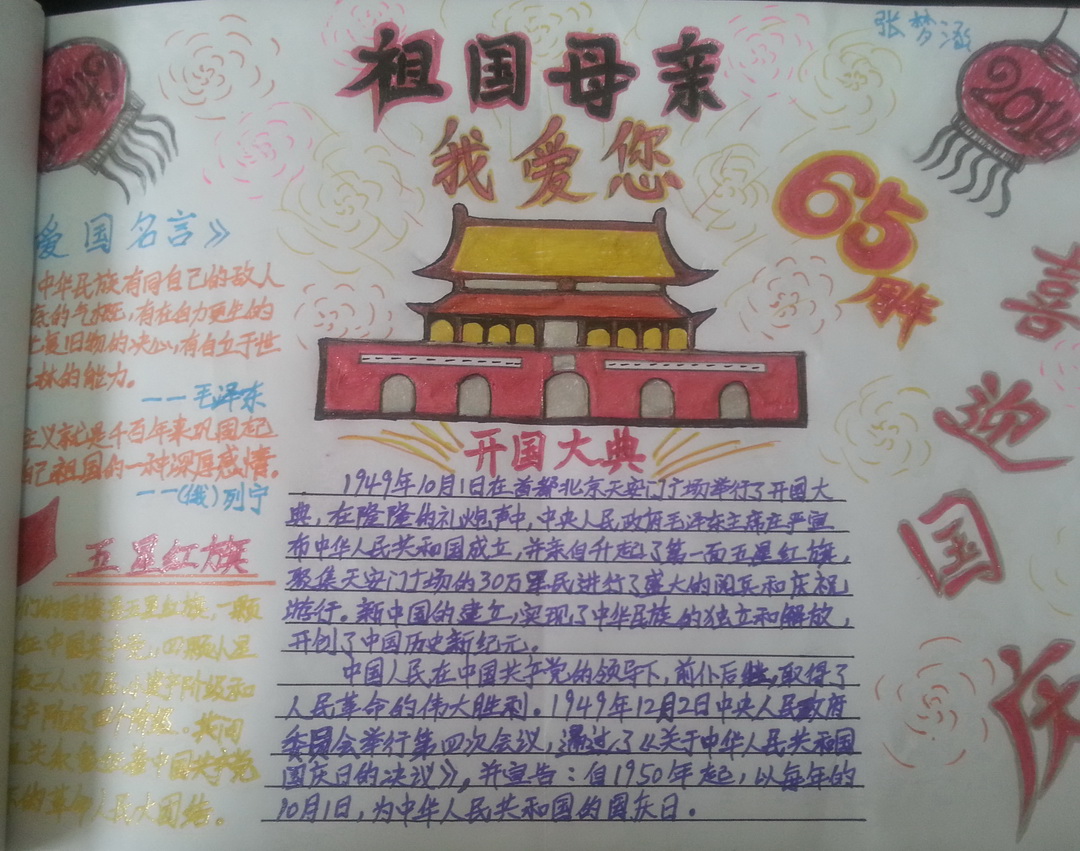 张梦涵
祖国母亲
我爱您
2014
2014
65周年
喜迎国庆
爱国名言》
中华民族有同自己的敌人
底的气概,有在自力更生的
上复旧物的决心,有自立于世
林的能力。
——毛泽东
主义就是千百年来巩固起
自己祖国的一种深厚感情。
——(俄)列宁
五星红旗
们的国旗是五星红旗,一颗
中国共产党,四颗小星
工人、农民、小资产阶级和
产阶级四个阶级。其间
关系象征着中国共产党
的革命人民大团结。
开国大典
1949年10月1日在首都北京天安门广场举行了开国大
典,在隆隆的礼炮声中,中央人民政府毛泽东主席庄严宣
布中华人民共和国成立,并亲自升起了第一面五星红旗,
聚集天安门广场的30万军民进行了盛大的阅兵和庆祝
游行。新中国的建立,实现了中华民族的独立和解放,
开创了中国历史新纪元。
中国人民在中国共产党的领导下,前仆后继,取得了
人民革命的伟大胜利。1949年12月2日中央人民政府
委员会举行第四次会议,通过了《关于中华人民共和国
国庆日的决议》,并宣告:自1950年起,以每年的
10月1日,为中华人民共和国的国庆日。